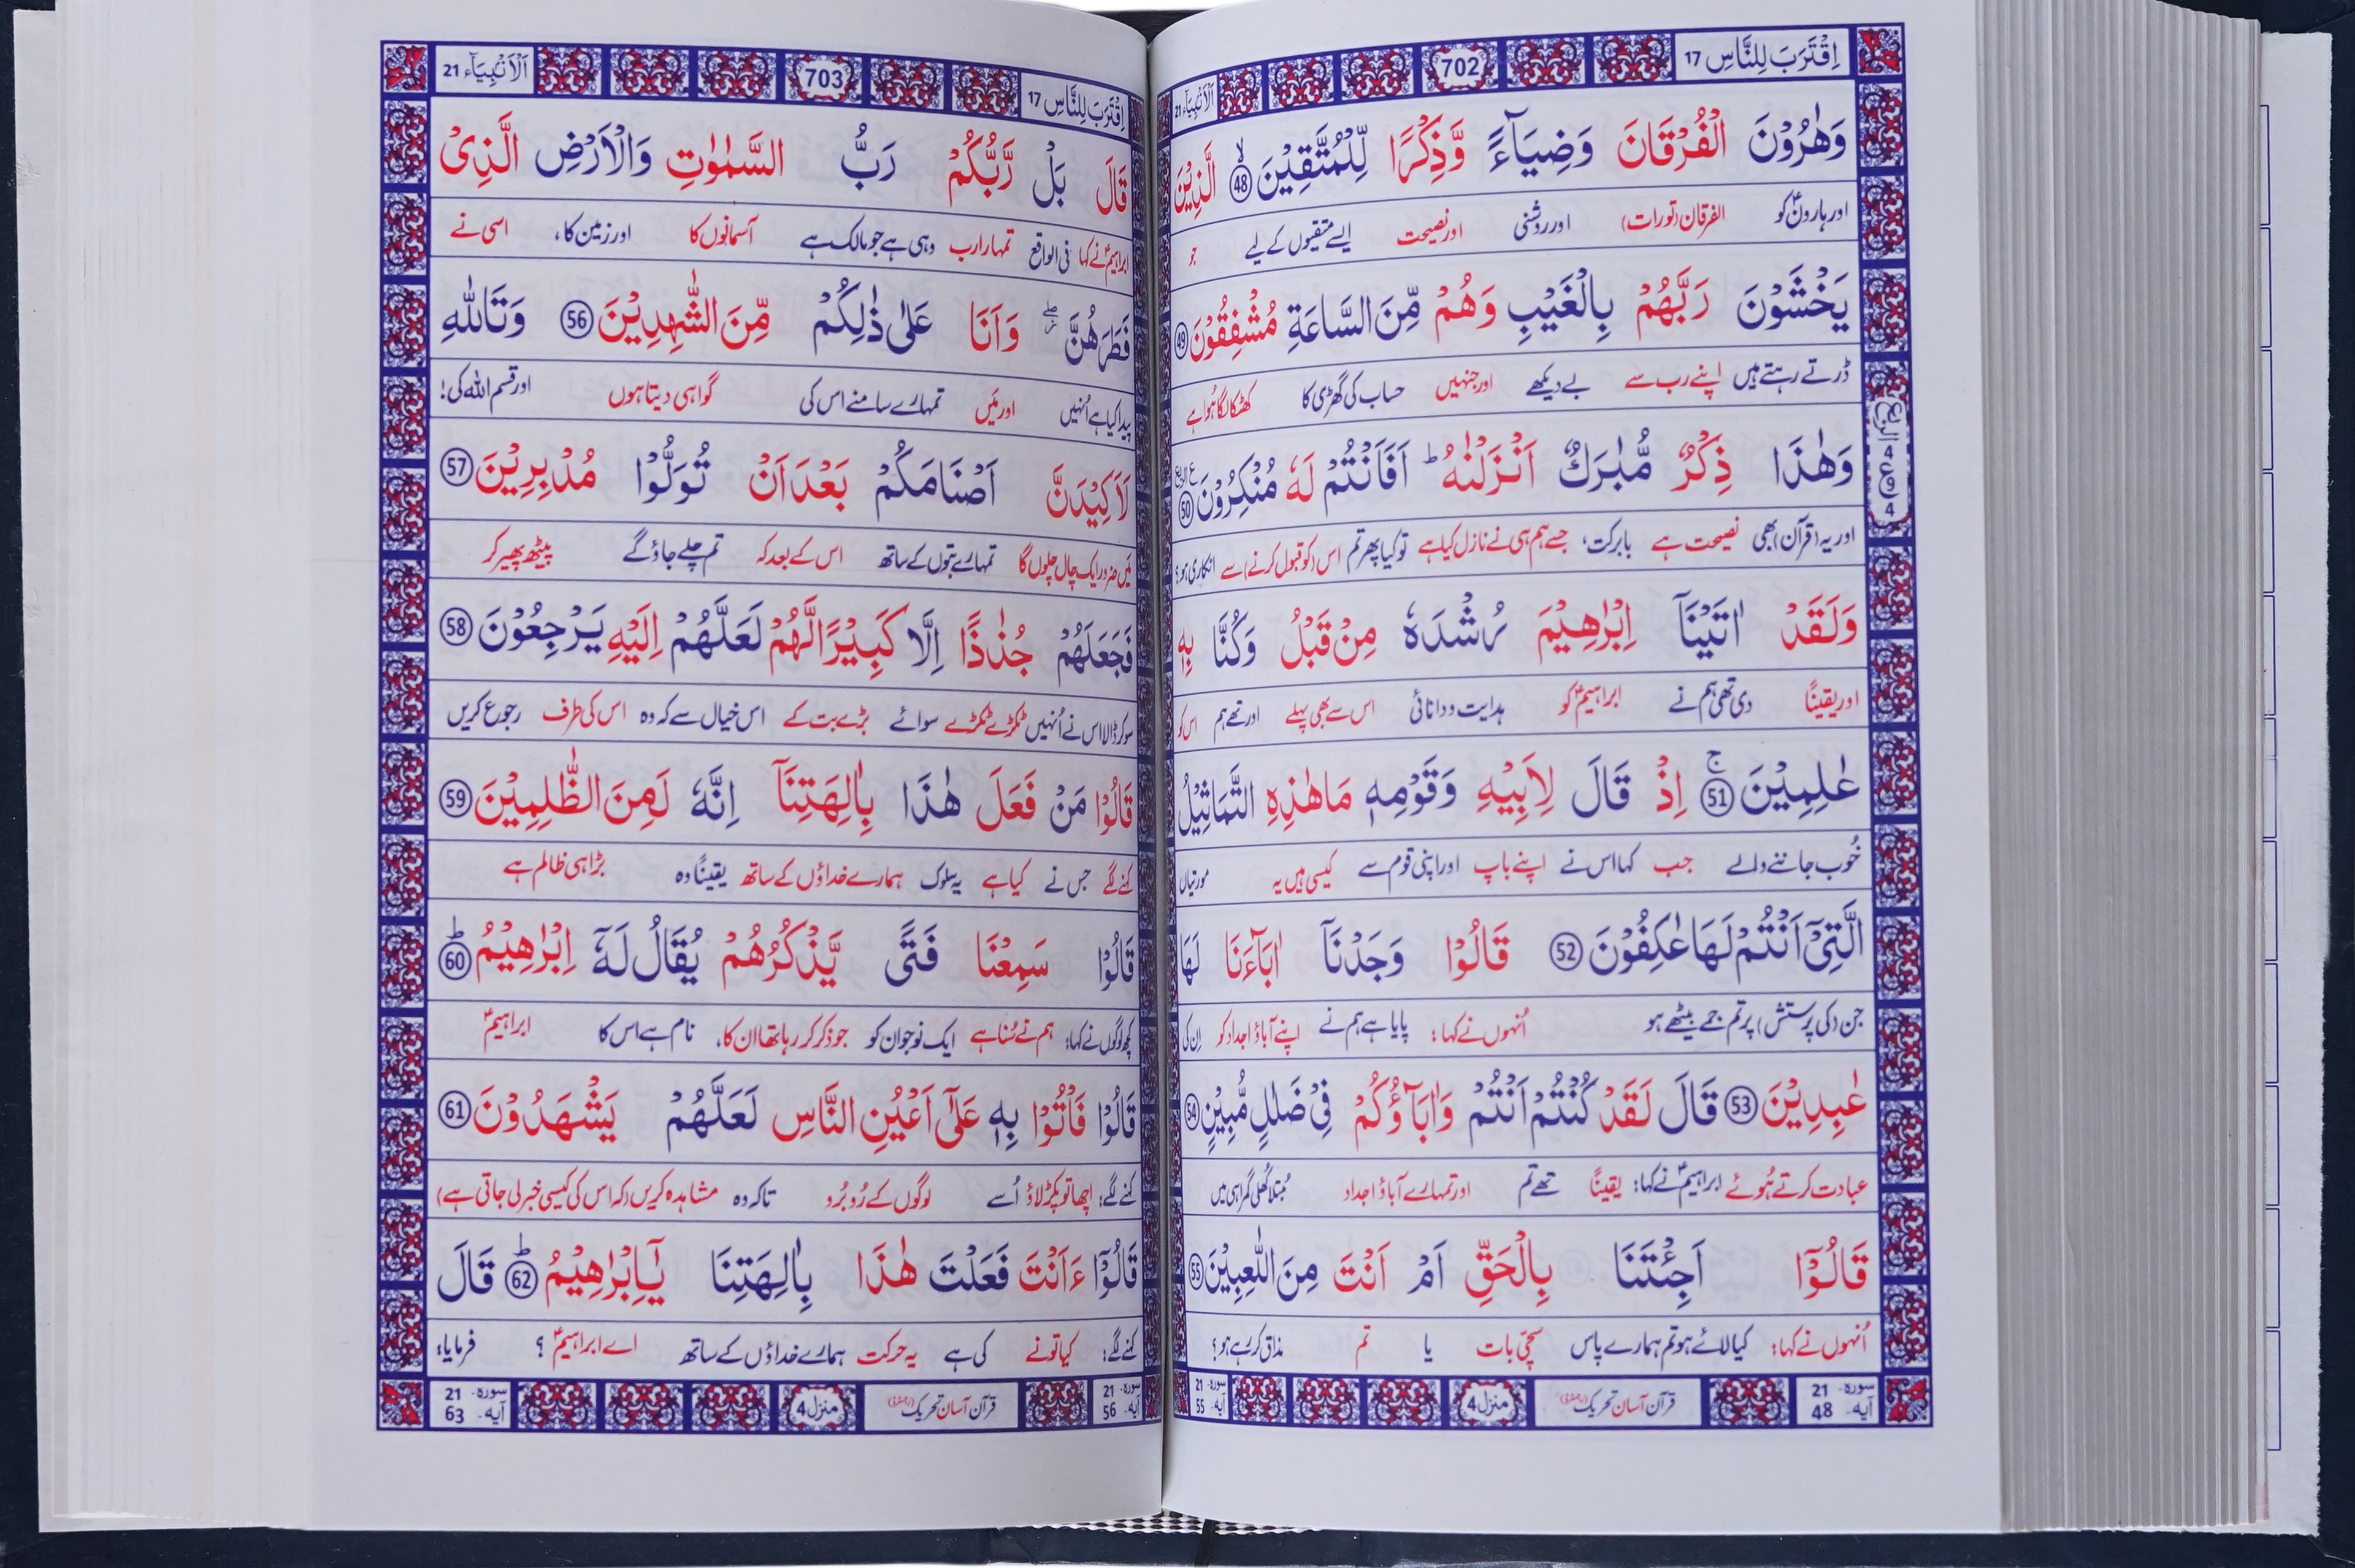 اِقْتَرَبَ لِلنَّاسِ 17
702
اَلْاَنْۢبِيَآء 21
وَهٰرُوْنَ الْفُرْقَانَ وَضِيَآءً وَّذِكْرًا لِّلْمُتَّقِيْنَ ۙ 48 الَّذِيْنَ
اور ہارونؑ کو الفرقان (تورات) اور روشنی اور نصیحت ایسے متقیوں کے لیے جو
يَخْشَوْنَ رَبَّهُمْ بِالْغَيْبِ وَهُمْ مِّنَ السَّاعَةِ مُشْفِقُوْنَ 49
ڈرتے رہتے ہیں اپنے رب سے بے دیکھے اور جنہیں حساب کی گھڑی کا کھٹکا لگا ہُوا ہے
وَهٰذَا ذِكْرٌ مُّبٰرَكٌ اَنْزَلْنٰهُ ؕ اَفَاَنْتُمْ لَهٗ مُنْكِرُوْنَ 50
اور یہ (قرآن) بھی نصیحت ہے بابرکت، جسے ہم ہی نے نازل کیا ہے تو کیا پھر تم اس (کو قبول کرنے) سے انکاری ہو؟
وَلَقَدْ اٰتَيْنَآ اِبْرٰهِيْمَ رُشْدَهٗ مِنْ قَبْلُ وَكُنَّا بِهٖ
اور یقینًا دی تھی ہم نے ابراہیمؑ کو ہدایت و دانائی اس سے بھی پہلے اور تھے ہم اس کو
عٰلِمِيْنَ ۚ 51 اِذْ قَالَ لِاَبِيْهِ وَقَوْمِهٖ مَا هٰذِهِ التَّمَاثِيْلُ
خُوب جاننے والے جب کہا اس نے اپنے باپ اور اپنی قوم سے کیسی ہیں یہ مورتیاں
الَّتِيْٓ اَنْتُمْ لَهَا عٰكِفُوْنَ 52 قَالُوْا وَجَدْنَآ اٰبَآءَنَا لَهَا
جن (کی پرستش) پر تم جمے بیٹھے ہو اُنہوں نے کہا: پایا ہے ہم نے اپنے آباؤ اجداد کو اِن کی
عٰبِدِيْنَ 53 قَالَ لَقَدْ كُنْتُمْ اَنْتُمْ وَاٰبَآؤُكُمْ فِيْ ضَلٰلٍ مُّبِيْنٍ 54
عبادت کرتے ہُوئے ابراہیمؑ نے کہا: یقینًا تھے تم اور تمہارے آباؤ اجداد مُبتلا کُھلی گمراہی میں
قَالُوْٓا اَجِئْتَنَا بِالْحَقِّ اَمْ اَنْتَ مِنَ اللّٰعِبِيْنَ 55
اُنہوں نے کہا: کیا لائے ہو تم ہمارے پاس سچّی بات یا تم مذاق کر رہے ہو؟
سورہ- 21 آیہ- 48
قرآن آسان تحریک
منزل 4
سورہ- 21 آیہ- 55
الربع
4
اِقْتَرَبَ لِلنَّاسِ 17
703
اَلْاَنْۢبِيَآء 21
قَالَ بَلْ رَّبُّكُمْ رَبُّ السَّمٰوٰتِ وَالْاَرْضِ الَّذِيْ
ابراہیمؑ نے کہا فی الواقع تمہارا رب وہی ہے جو مالک ہے آسمانوں کا اور زمین کا، اسی نے
فَطَرَهُنَّ ۖ وَاَنَا عَلٰى ذٰلِكُمْ مِّنَ الشّٰهِدِيْنَ 56 وَتَاللّٰهِ
پیدا کیا ہے اُنہیں اور مَیں تمہارے سامنے اس کی گواہی دیتا ہوں اور قسم اللہ کی!
لَاَكِيْدَنَّ اَصْنَامَكُمْ بَعْدَ اَنْ تُوَلُّوْا مُدْبِرِيْنَ 57
مَیں ضرور ایک چال چلوں گا تمہارے بتوں کے ساتھ اس کے بعد کہ تم چلے جاؤ گے پیٹھ پھیر کر
فَجَعَلَهُمْ جُذٰذًا اِلَّا كَبِيْرًا لَّهُمْ لَعَلَّهُمْ اِلَيْهِ يَرْجِعُوْنَ 58
سو کر ڈالا اس نے اُنہیں ٹکڑے ٹکڑے سوائے بڑے بت کے اس خیال سے کہ وہ اس کی طرف رجوع کریں
قَالُوْا مَنْ فَعَلَ هٰذَا بِاٰلِهَتِنَآ اِنَّهٗ لَمِنَ الظّٰلِمِيْنَ 59
کہنے لگے جس نے کیا ہے یہ سلوک ہمارے خداؤں کے ساتھ یقینًا وہ بڑا ہی ظالم ہے
قَالُوْا سَمِعْنَا فَتًى يَّذْكُرُهُمْ يُقَالُ لَهٗٓ اِبْرٰهِيْمُ ؕ 60
کچھ لوگوں نے کہا: ہم نے سُنا ہے ایک نوجوان کو جو ذکر کر رہا تھا ان کا، نام ہے اس کا ابراہیمؑ
قَالُوْا فَاْتُوْا بِهٖ عَلٰٓى اَعْيُنِ النَّاسِ لَعَلَّهُمْ يَشْهَدُوْنَ 61
کہنے لگے: اچھا تو پکڑ لاؤ اُسے لوگوں کے رُو بُرو تاکہ وہ مشاہدہ کریں (کہ اس کی کیسی خبر لی جاتی ہے)
قَالُوْٓا ءَاَنْتَ فَعَلْتَ هٰذَا بِاٰلِهَتِنَا يٰٓاِبْرٰهِيْمُ ؕ 62 قَالَ
کہنے لگے: کیا تو نے کی ہے یہ حرکت ہمارے خداؤں کے ساتھ اے ابراہیمؑ؟ فرمایا:
سورہ- 21 آیہ- 56
قرآن آسان تحریک
منزل 4
سورہ- 21 آیہ- 63